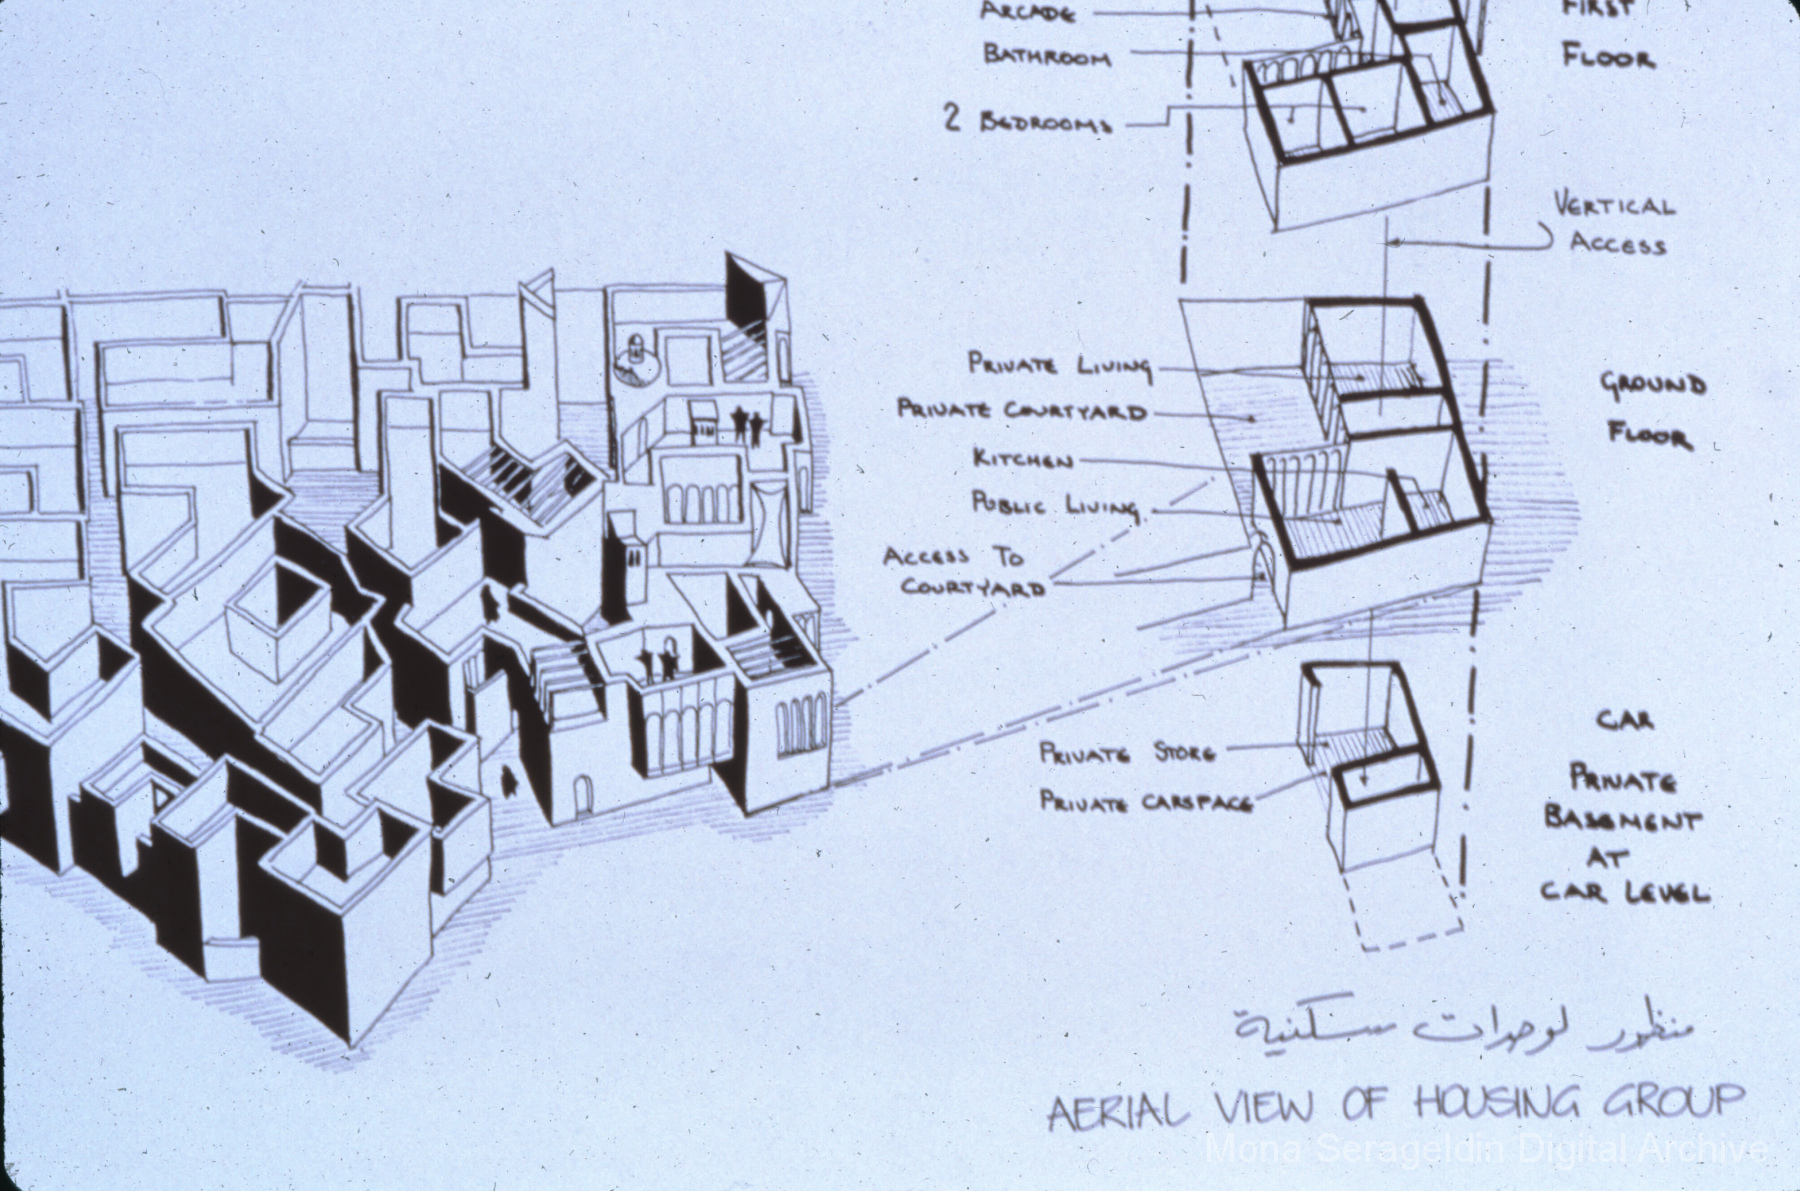 ARCADE
BATHROOM
2 BEDROOMS
FIRST
FLOOR
VERTICAL
ACCESS
PRIVATE LIVING
PRIVATE COURTYARD
KITCHEN
PUBLIC LIVING
ACCESS TO
COURTYARD
GROUND
FLOOR
PRIVATE STORE
PRIVATE CARSPACE
CAR
PRIVATE
BASEMENT
AT
CAR LEVEL
منظور لوحدات سكنية
AERIAL VIEW OF HOUSING GROUP
Mona Serageldin Digital Archive